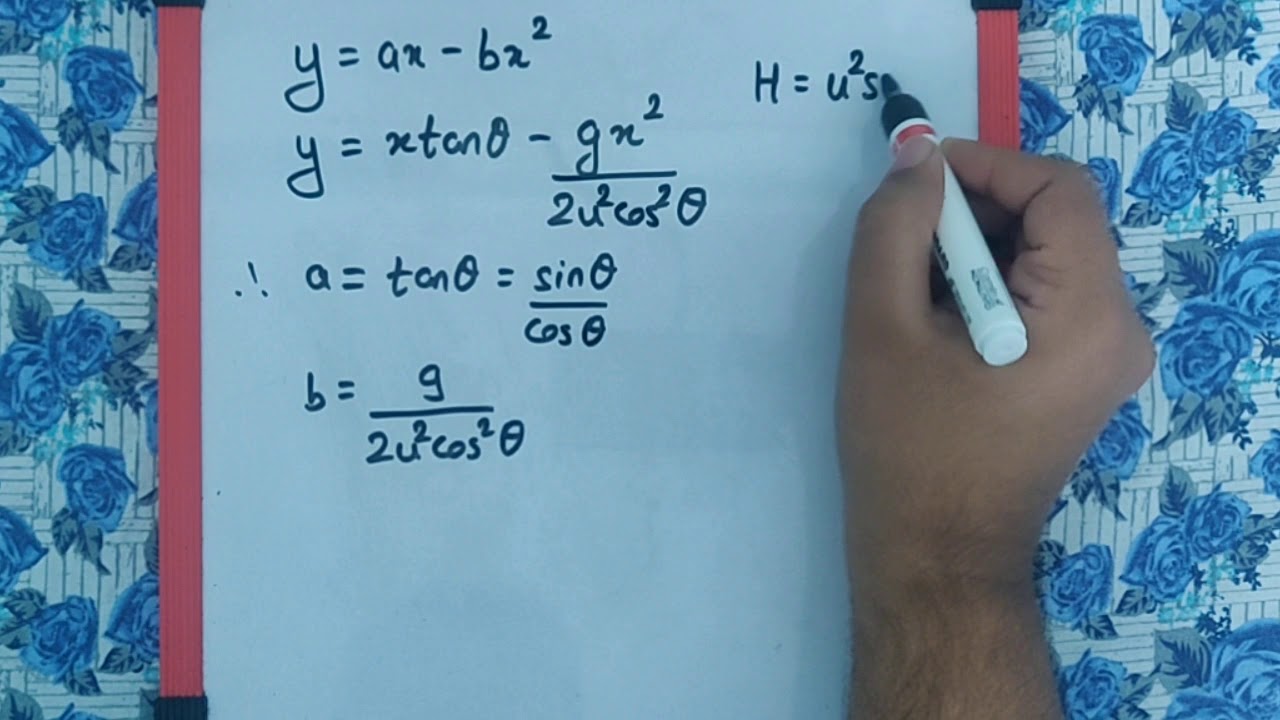 y = ax - bx²
y = xtanθ - gx²/2u²cos²θ
∴ a = tanθ = sinθ/cosθ
b = g/2u²cos²θ
H = u²s